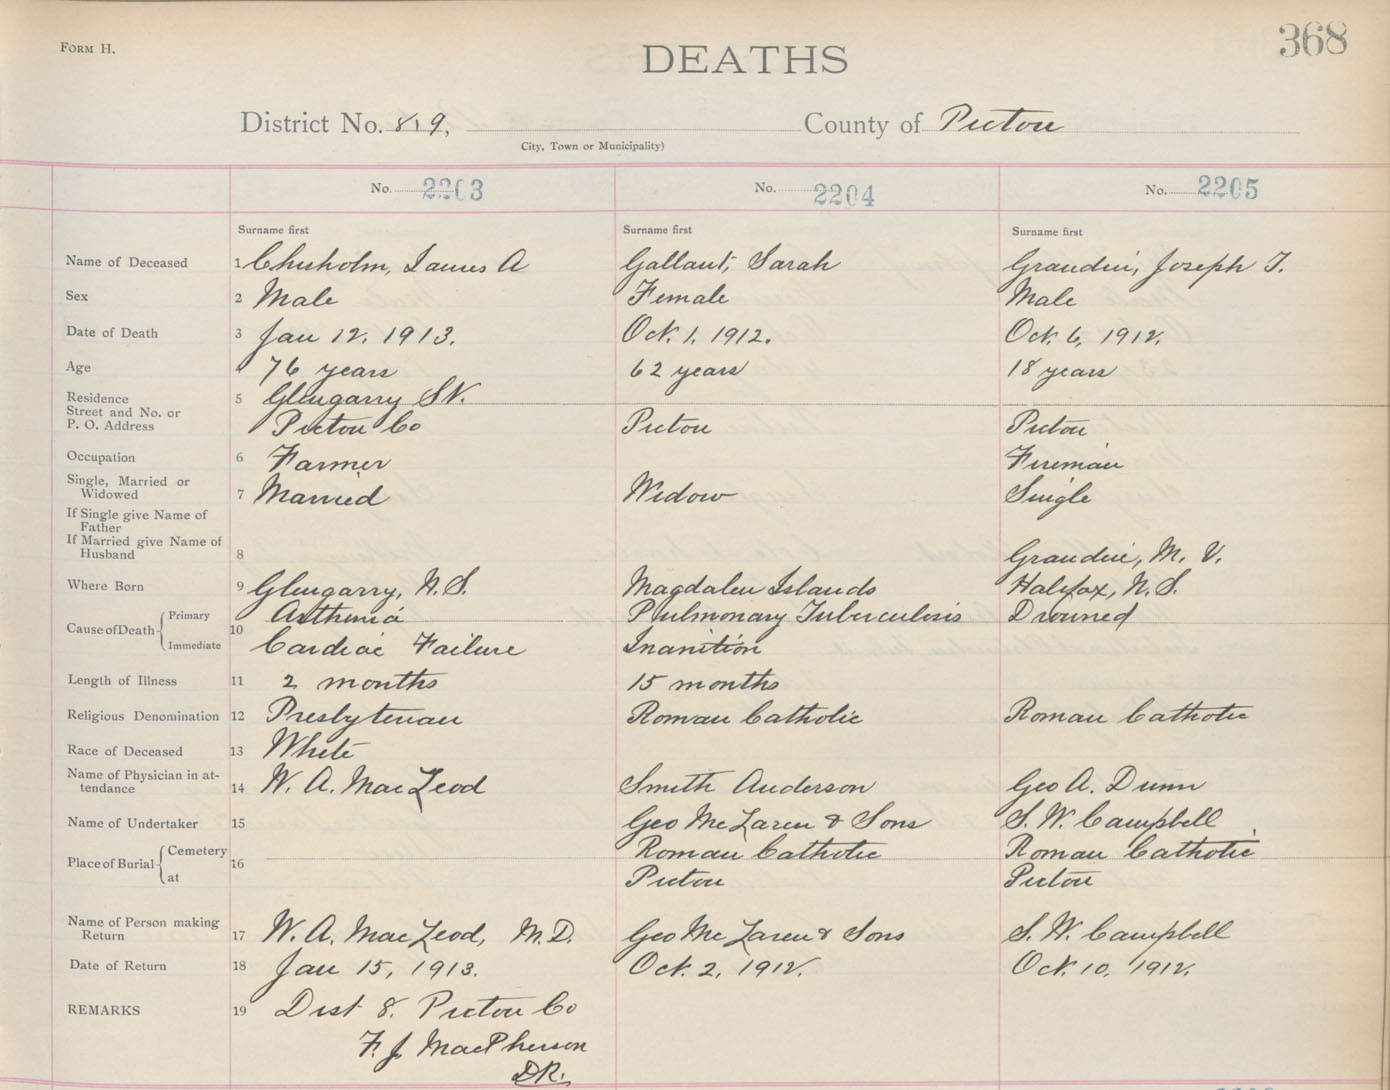 Form H.
DEATHS
368
District No. 8, 9, County of Pictou
City, Town or Municipality)
No. 2203 No. 2204 No. 2205
Surname first Surname first Surname first
Name of Deceased 1 Chisholm, James A Gallant, Sarah Grandin, Joseph T.
Sex 2 Male Female Male
Date of Death 3 Jan 12, 1913. Oct. 1, 1912. Oct. 6, 1912.
Age 4 76 years 62 years 18 years
Residence 5 Glengarry St.
Street and No. or
P. O. Address Pictou Co Pictou Pictou
Occupation 6 Farmer Fireman
Single, Married or
Widowed 7 Married Widow Single
If Single give Name of
Father
If Married give Name of
Husband 8 Grandin, M. V.
Where Born 9 Glengarry, N.S. Magdalen Islands Halifax, N.S.
Cause of Death Primary 10 Asthenia Pulmonary Tuberculosis Drowned
Immediate Cardiac Failure Inanition
Length of Illness 11 2 months 15 months
Religious Denomination 12 Presbyterian Roman Catholic Roman Catholic
Race of Deceased 13 White
Name of Physician in at-
tendance 14 W. A. MacLeod Smith Anderson Geo A. Dunn
Name of Undertaker 15 Geo McLaren & Sons S. W. Campbell
Place of Burial Cemetery 16 Roman Catholic Roman Catholic
at Pictou Pictou
Name of Person making
Return 17 W. A. MacLeod, M.D. Geo McLaren & Sons S. W. Campbell
Date of Return 18 Jan 15, 1913. Oct. 2, 1912. Oct. 10, 1912.
REMARKS 19 Dist 8. Pictou Co
F. J. MacPherson
D.R.